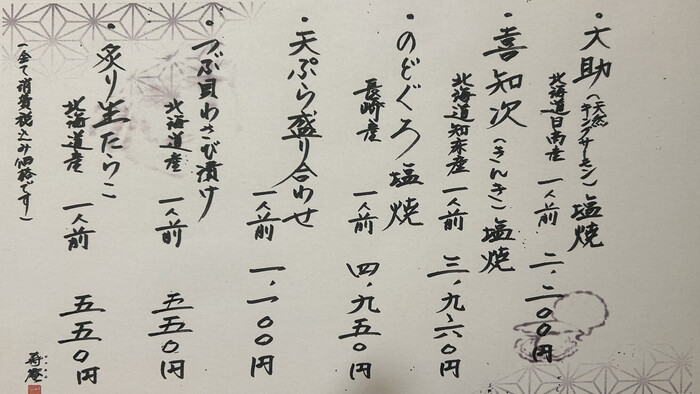 ・大助(天然キングサーモン)塩焼
北海道日高産 一人前 二、二〇〇円
・喜知次(きんき)塩焼
北海道知床産 一人前 三、九六〇円
・のどぐろ塩焼
長崎産 一人前 四、九五〇円
・天ぷら盛り合わせ
一人前 一、一〇〇円
・つぶ貝わさび漬け
北海道産 一人前 五五〇円
・炙り生たらこ
北海道産 一人前 五五〇円
(全て消費税込み価格です)